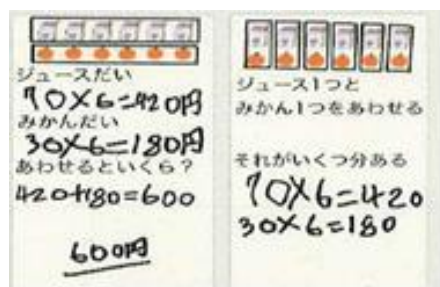 ジュースだい
70×6=420円
みかんだい
30×6=180円
あわせるといくら?
420+180=600
600円
ジュース1つと
みかん1つをあわせる
それがいくつ分ある
70×6=420
30×6=180